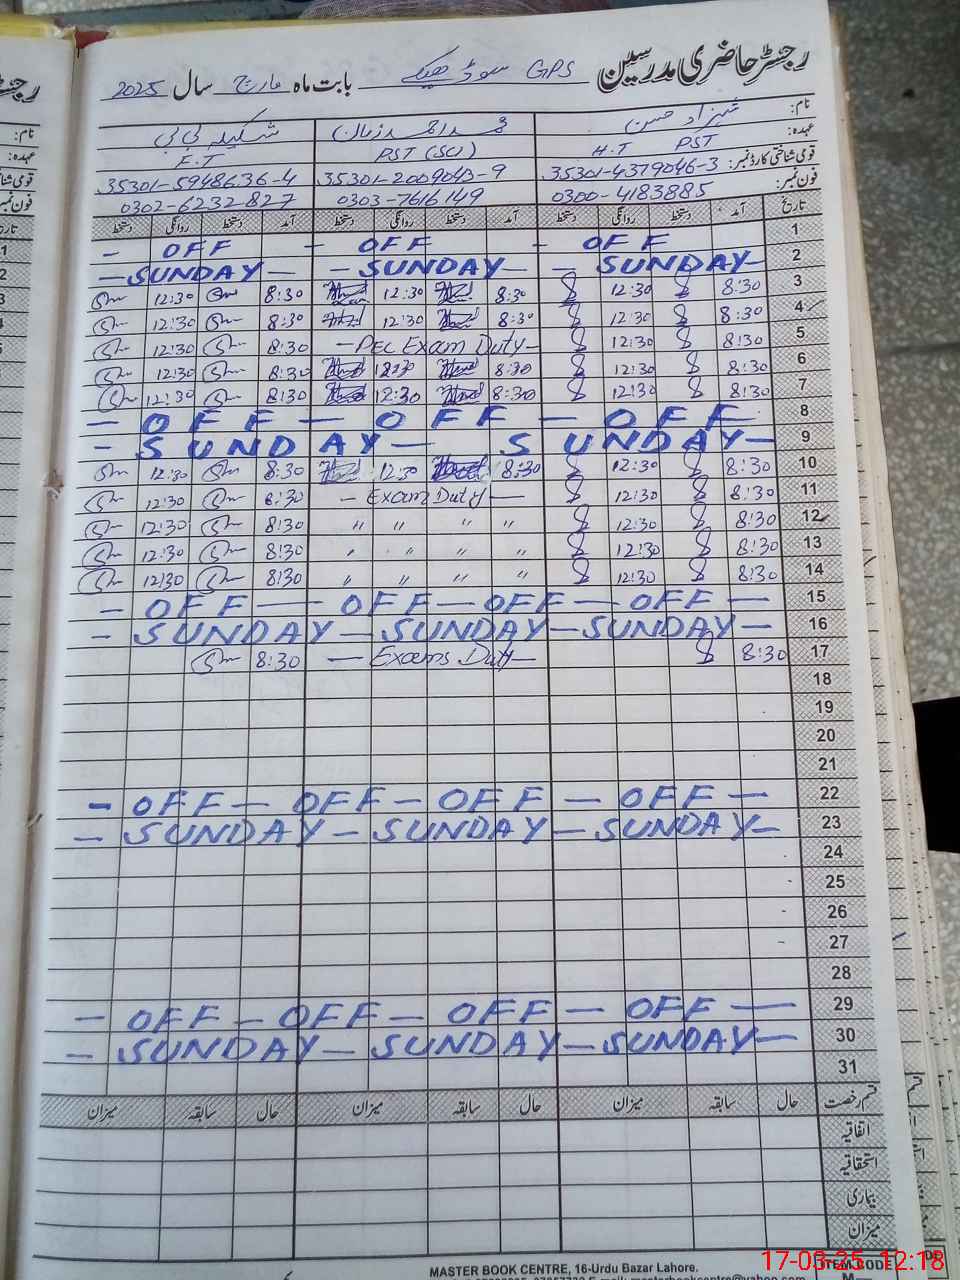 رجسٹر حاضری مدرسین GPS سوڈھیکے بابت ماہ مارچ سال 2025
نام: شہزاد حسن محمد احمد زمان شکیلہ بی بی
عہدہ: H.T PST PST (SCI) E.T
قومی شناختی کارڈ نمبر: 35301-4379046-3 35301-2009043-9 35301-5948636-4
فون نمبر: 0300-4183885 0303-7616149 0302-6232827
تاریخ آمد دستخط روانگی دستخط آمد دستخط روانگی دستخط آمد دستخط روانگی دستخط
- OFF - OFF - OFF 1
- SUNDAY - - SUNDAY - - SUNDAY - 2
12:30 8:30 12:30 8:30 12:30 8:30 3
12:30 8:30 12:30 8:30 12:30 8:30 4
12:30 8:30 - PEC Exam Duty - 12:30 8:30 5
12:30 8:30 12:30 8:30 12:30 8:30 6
12:30 8:30 12:30 8:30 12:30 8:30 7
- OFF - OFF - OFF 8
- SUNDAY - SUNDAY - 9
12:30 8:30 12:30 8:30 12:30 8:30 10
12:30 8:30 - Exam Duty - 12:30 8:30 11
12:30 8:30 " " " " 12:30 8:30 12
12:30 8:30 " " " " 12:30 8:30 13
12:30 8:30 " " " " 12:30 8:30 14
- OFF - OFF - OFF - OFF - 15
- SUNDAY - SUNDAY - SUNDAY - 16
8:30 - Exams Duty - 8:30 17
18
19
20
21
- OFF - OFF - OFF - OFF - 22
- SUNDAY - SUNDAY - SUNDAY - 23
24
25
26
27
28
- OFF - OFF - OFF - OFF - 29
- SUNDAY - SUNDAY - SUNDAY - 30
31
قسم رخصت حال سابقہ میزان حال سابقہ میزان حال سابقہ میزان
اتفاقیہ
استحقاقیہ
بیماری
میزان
MASTER BOOK CENTRE, 16-Urdu Bazar Lahore.
ITEM CODE
17-03-25 12:18